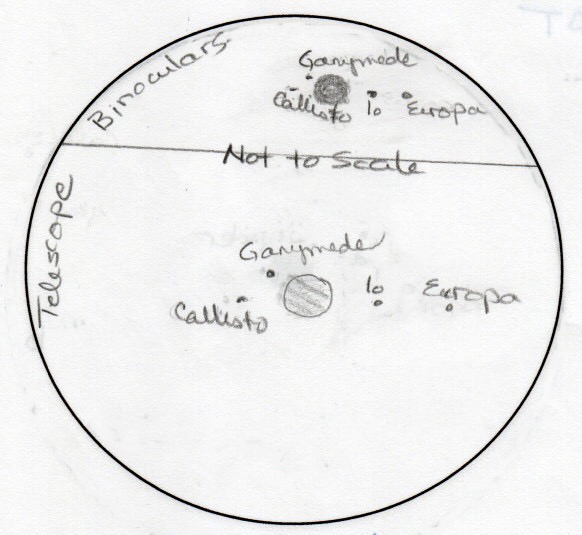 Binoculars
Ganymede
Callisto
Io
Europa
Not to Scale
Telescope
Ganymede
Io
Europa
Callisto